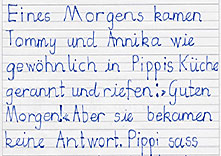 Eines Morgens kamen
Tommy und Annika wie
gewöhnlich in Pippis Küche
gerannt und riefen:»Guten
Morgen!«Aber sie bekamen
keine Antwort. Pippi sass